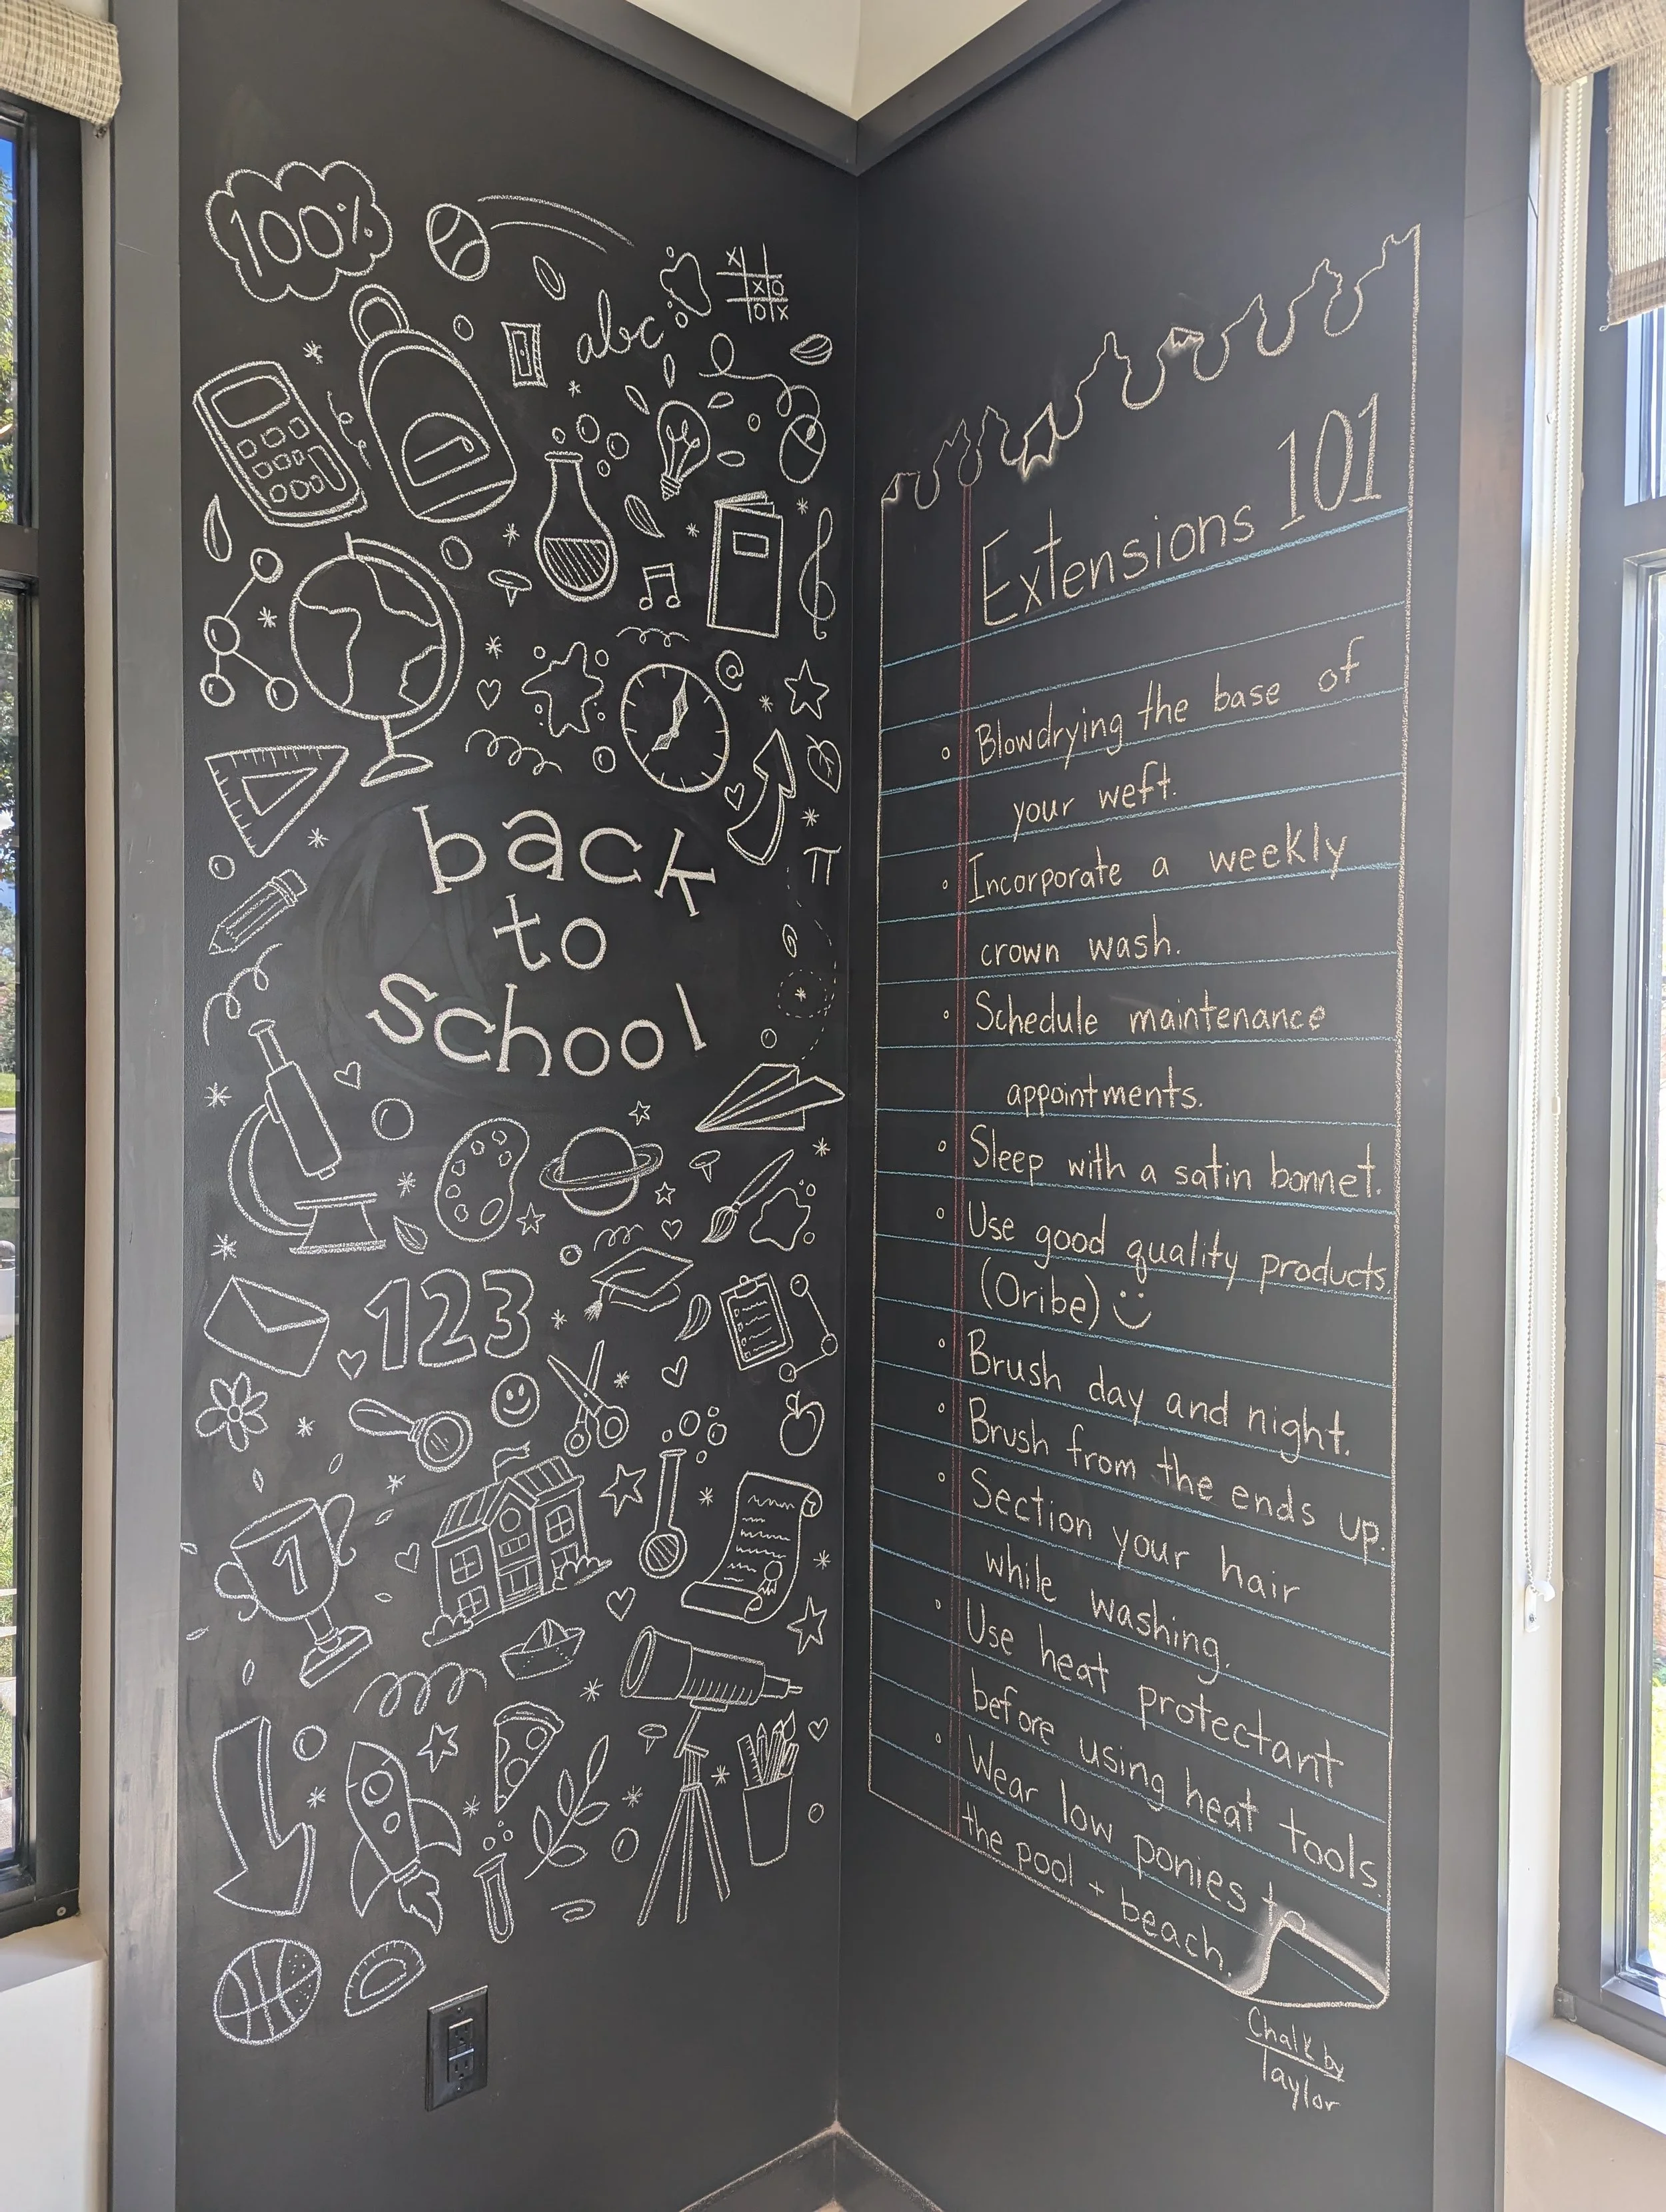 100%
abc
X
X O
O X
@
π
back
to
school
123
1
Extensions 101
Blowdrying the base of
your weft.
Incorporate a weekly
crown wash.
Schedule maintenance
appointments.
Sleep with a satin bonnet.
Use good quality products.
(Oribe) :)
Brush day and night.
Brush from the ends up.
Section your hair
while washing.
Use heat protectant
before using heat tools.
Wear low ponies to
the pool + beach.
Chalk by
Taylor